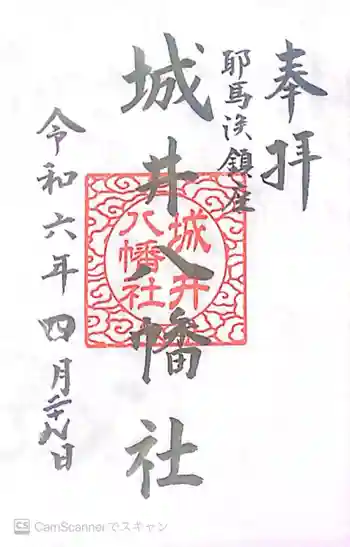 奉拝
耶馬渓鎮座
城井八幡社
城井
八幡社
令和六年四月二十九日
CS CamScannerでスキャン